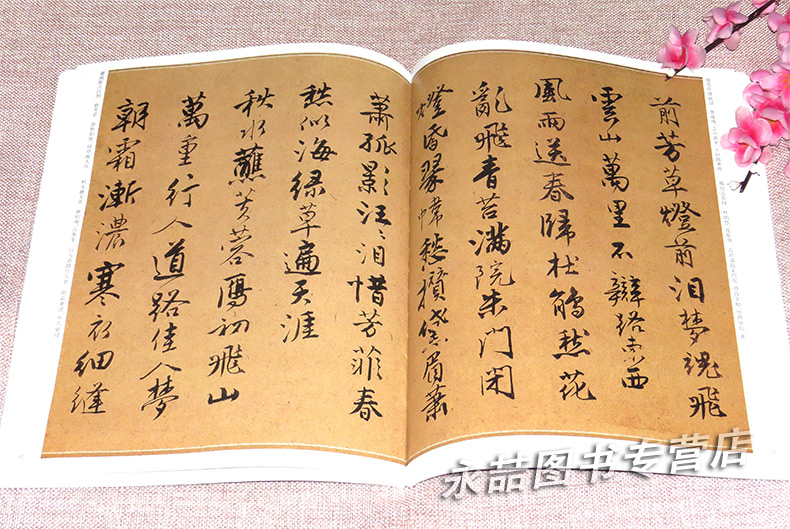 前芳草燈前泪夢魂飛
雲山萬里不辯路东西
風雨送春歸杜鵑愁花
亂飛青苔滿院朱門閉
燈昏翠幃愁攢黛眉蕭
蕭孤影汪〻泪惜芳菲春
愁似海绿草遍天涯
秋水蘸芙蓉鴈初飛山
萬重行人道路佳人夢
朝霜漸濃寒衣细縫
永喆图书专营店